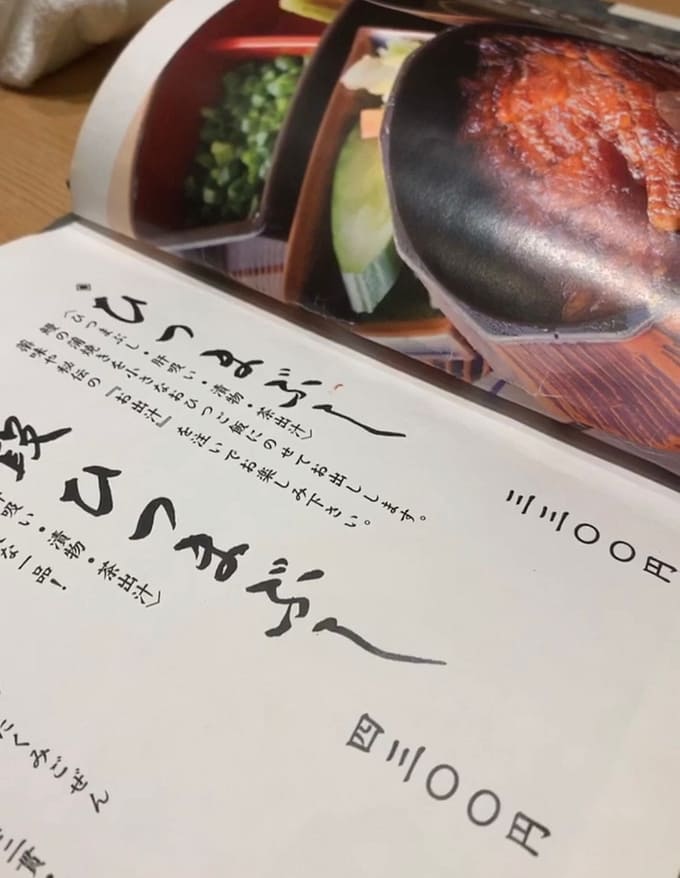 ひつまぶし
三三〇〇円
〈ひつまぶし・肝吸い・漬物・茶出汁〉
鰻の蒲焼きを小さなおひつご飯にのせてお出しします。
薬味や秘伝の『お出汁』を注いでお楽しみ下さい。
段ひつまぶし
四三〇〇円
吸い・漬物・茶出汁〉
な一品!
くみごぜん
三貫・